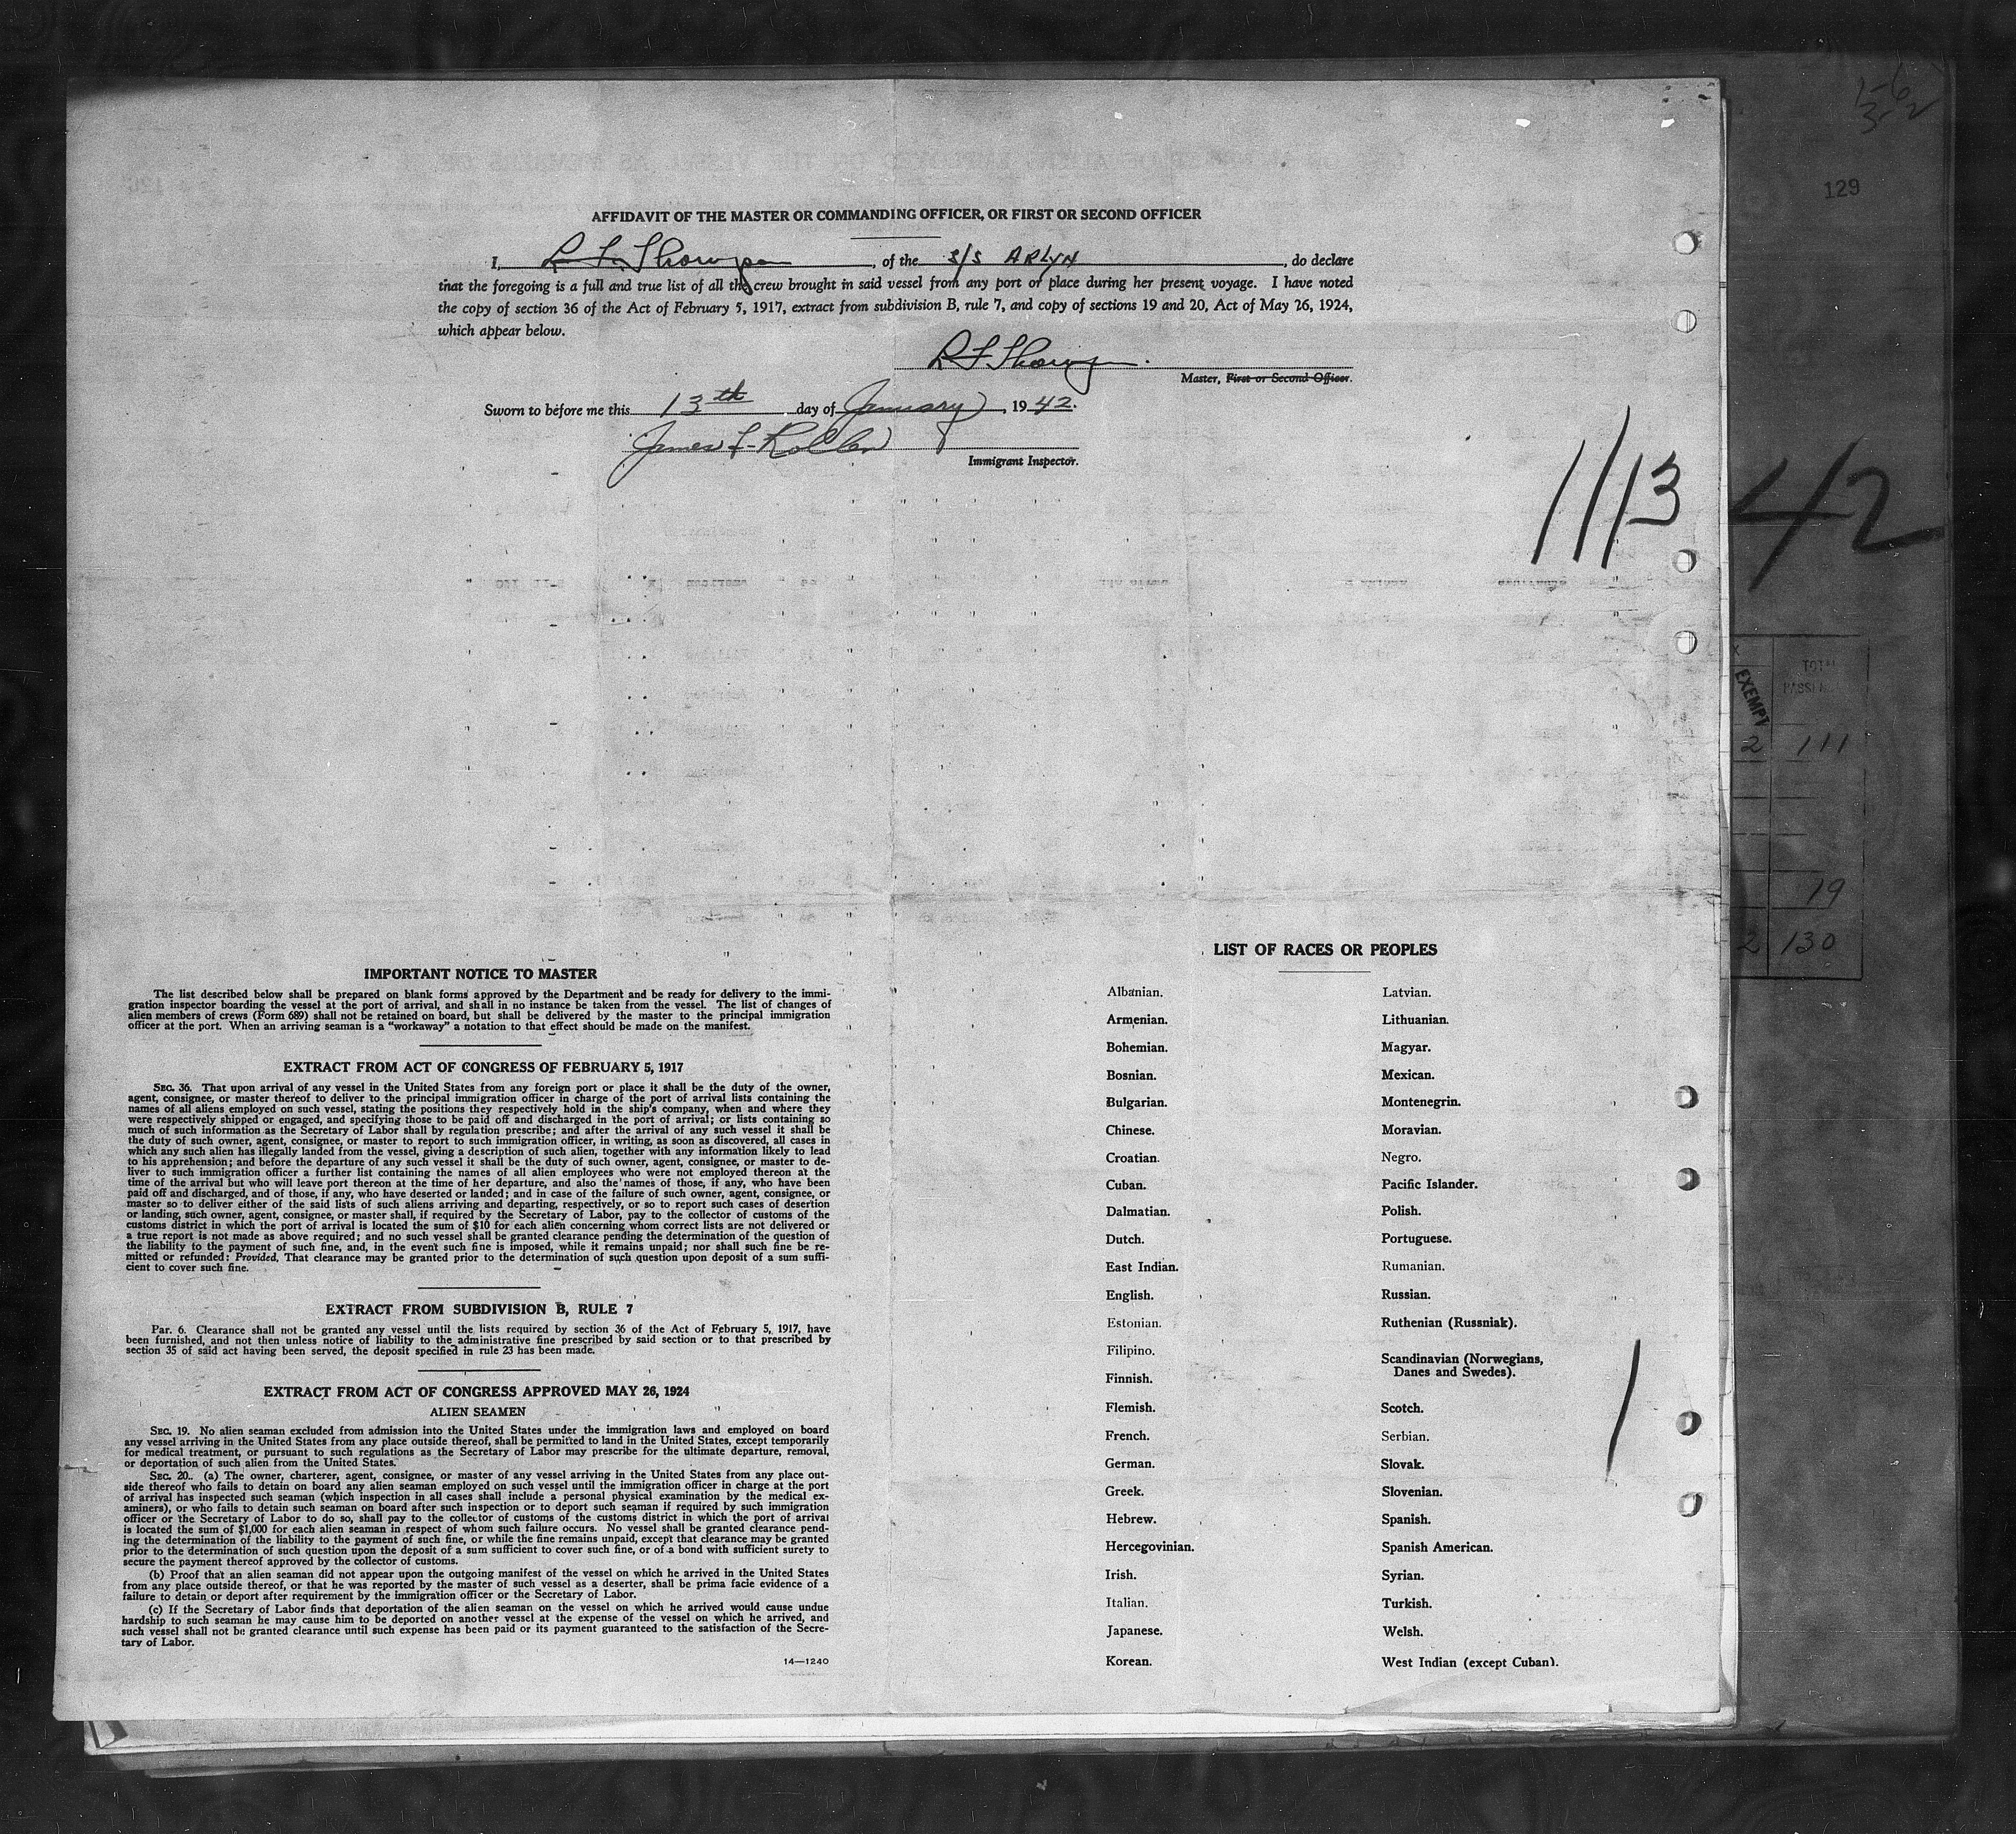 129
AFFIDAVIT OF THE MASTER OR COMMANDING OFFICER, OR FIRST OR SECOND OFFICER
I, Thompson, of the S/S ARLYN, do declare
that the foregoing is a full and true list of all the crew brought in said vessel from any port or place during her present voyage. I have noted
the copy of section 36 of the Act of February 5, 1917, extract from subdivision B, rule 7, and copy of sections 19 and 20, Act of May 26, 1924,
which appear below.
Master, First or Second Officer.
Sworn to before me this 13th day of January, 1942.
James
Immigrant Inspector.
1/13
42
EXEMPT
TOTAL
PASSEN
2 111
19
2 130
IMPORTANT NOTICE TO MASTER
The list described below shall be prepared on blank forms approved by the Department and be ready for delivery to the immi-
gration inspector boarding the vessel at the port of arrival, and shall in no instance be taken from the vessel. The list of changes of
alien members of crews (Form 689) shall not be retained on board, but shall be delivered by the master to the principal immigration
officer at the port. When an arriving seaman is a "workaway" a notation to that effect should be made on the manifest.
EXTRACT FROM ACT OF CONGRESS OF FEBRUARY 5, 1917
SEC. 36. That upon arrival of any vessel in the United States from any foreign port or place it shall be the duty of the owner,
agent, consignee, or master thereof to deliver to the principal immigration officer in charge of the port of arrival lists containing the
names of all aliens employed on such vessel, stating the positions they respectively hold in the ship's company, when and where they
were respectively shipped or engaged, and specifying those to be paid off and discharged in the port of arrival; or lists containing so
much of such information as the Secretary of Labor shall by regulation prescribe; and after the arrival of any such vessel it shall be
the duty of such owner, agent, consignee, or master to report to such immigration officer, in writing, as soon as discovered, all cases in
which any such alien has illegally landed from the vessel, giving a description of such alien, together with any information likely to lead
to his apprehension; and before the departure of any such vessel it shall be the duty of such owner, agent, consignee, or master to de-
liver to such immigration officer a further list containing the names of all alien employees who were not employed thereon at the
time of the arrival but who will leave port thereon at the time of her departure, and also the names of those, if any, who have been
paid off and discharged, and of those, if any, who have deserted or landed; and in case of the failure of such owner, agent, consignee, or
master so to deliver either of the said lists of such aliens arriving and departing, respectively, or so to report such cases of desertion
or landing, such owner, agent, consignee, or master shall, if required by the Secretary of Labor, pay to the collector of customs of the
customs district in which the port of arrival is located the sum of $10 for each alien concerning whom correct lists are not delivered or
a true report is not made as above required; and no such vessel shall be granted clearance pending the determination of the question of
the liability to the payment of such fine, and, in the event such fine is imposed, while it remains unpaid; nor shall such fine be re-
mitted or refunded: Provided, That clearance may be granted prior to the determination of such question upon deposit of a sum suffi-
cient to cover such fine.
EXTRACT FROM SUBDIVISION B, RULE 7
Par. 6. Clearance shall not be granted any vessel until the lists required by section 36 of the Act of February 5, 1917, have
been furnished, and not then unless notice of liability to the administrative fine prescribed by said section or to that prescribed by
section 35 of said act having been served, the deposit specified in rule 23 has been made.
EXTRACT FROM ACT OF CONGRESS APPROVED MAY 26, 1924
ALIEN SEAMEN
SEC. 19. No alien seaman excluded from admission into the United States under the immigration laws and employed on board
any vessel arriving in the United States from any place outside thereof, shall be permitted to land in the United States, except temporarily
for medical treatment, or pursuant to such regulations as the Secretary of Labor may prescribe for the ultimate departure, removal,
or deportation of such alien from the United States.
SEC. 20. (a) The owner, charterer, agent, consignee, or master of any vessel arriving in the United States from any place out-
side thereof who fails to detain on board any alien seaman employed on such vessel until the immigration officer in charge at the port
of arrival has inspected such seaman (which inspection in all cases shall include a personal physical examination by the medical ex-
aminers), or who fails to detain such seaman on board after such inspection or to deport such seaman if required by such immigration
officer or the Secretary of Labor to do so, shall pay to the collector of customs of the customs district in which the port of arrival
is located the sum of $1,000 for each alien seaman in respect of whom such failure occurs. No vessel shall be granted clearance pend-
ing the determination of the liability to the payment of such fine, or while the fine remains unpaid, except that clearance may be granted
prior to the determination of such question upon the deposit of a sum sufficient to cover such fine, or of a bond with sufficient surety to
secure the payment thereof approved by the collector of customs.
(b) Proof that an alien seaman did not appear upon the outgoing manifest of the vessel on which he arrived in the United States
from any place outside thereof, or that he was reported by the master of such vessel as a deserter, shall be prima facie evidence of a
failure to detain or deport after requirement by the immigration officer or the Secretary of Labor.
(c) If the Secretary of Labor finds that deportation of the alien seaman on the vessel on which he arrived would cause undue
hardship to such seaman he may cause him to be deported on another vessel at the expense of the vessel on which he arrived, and
such vessel shall not be granted clearance until such expense has been paid or its payment guaranteed to the satisfaction of the Secre-
tary of Labor.
14—1240
LIST OF RACES OR PEOPLES
Albanian.
Armenian.
Bohemian.
Bosnian.
Bulgarian.
Chinese.
Croatian.
Cuban.
Dalmatian.
Dutch.
East Indian.
English.
Estonian.
Filipino.
Finnish.
Flemish.
French.
German.
Greek.
Hebrew.
Hercegovinian.
Irish.
Italian.
Japanese.
Korean.
Latvian.
Lithuanian.
Magyar.
Mexican.
Montenegrin.
Moravian.
Negro.
Pacific Islander.
Polish.
Portuguese.
Rumanian.
Russian.
Ruthenian (Russniak).
Scandinavian (Norwegians,
Danes and Swedes).
Scotch.
Serbian.
Slovak.
Slovenian.
Spanish.
Spanish American.
Syrian.
Turkish.
Welsh.
West Indian (except Cuban).